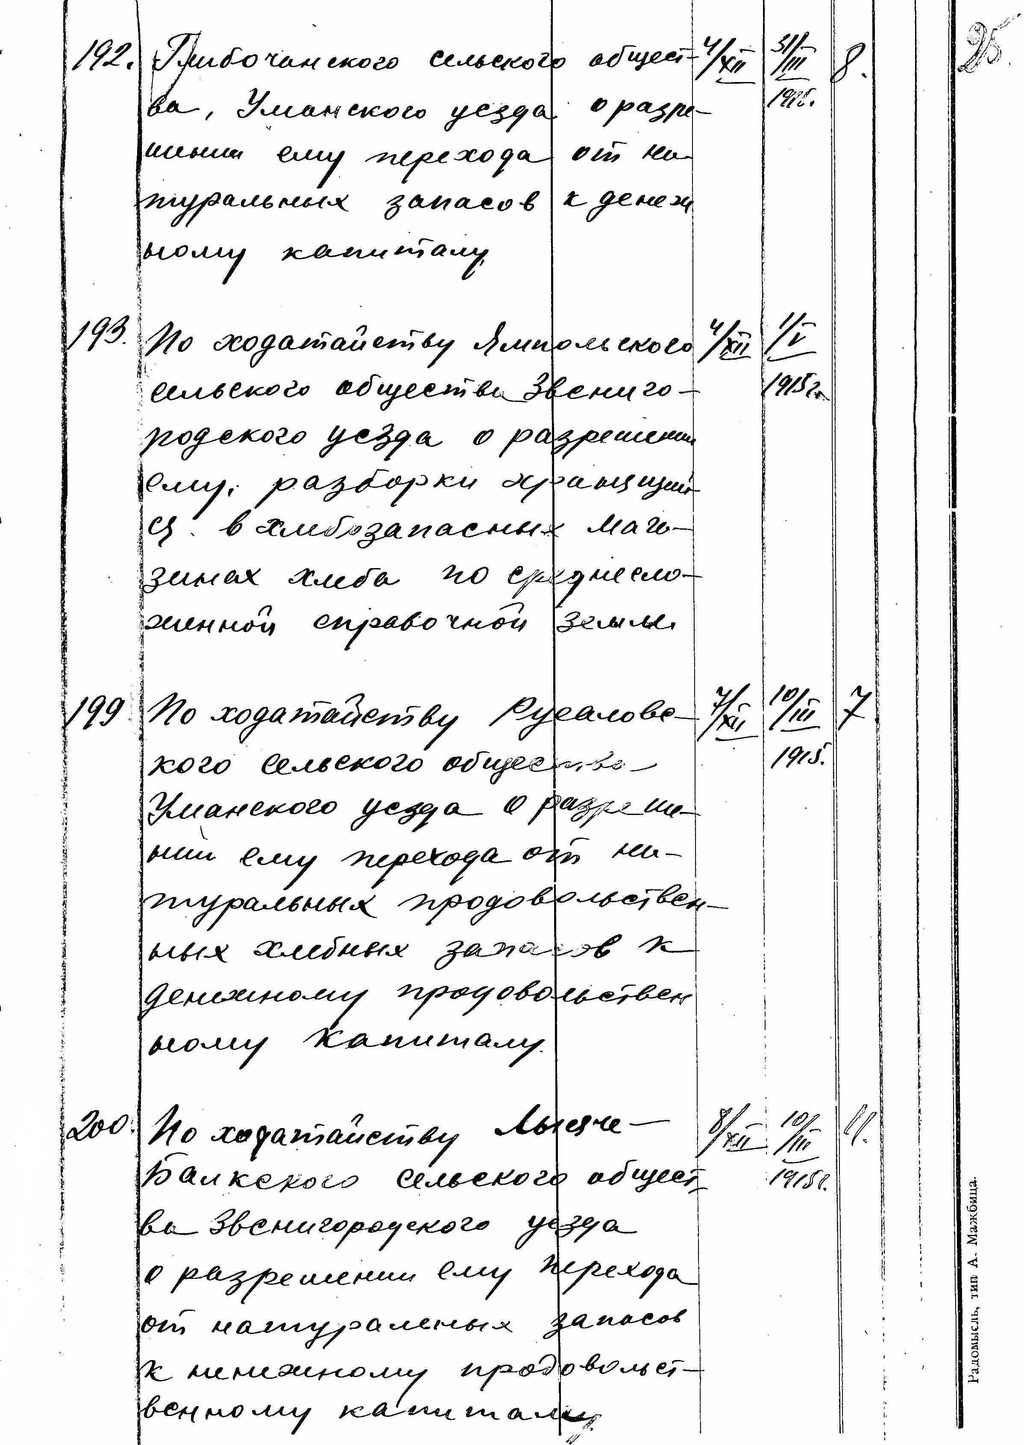 25.
192. Глибочанского сельского общест- 4/XII 31/III 8.
ва, Уманского уезда о разре- 1915.
шении ему перехода от на
туральных запасов к денеж
ному капиталу
193. По ходатайству Ямпольского 4/XII 1/V
сельского общества Звениго- 1915 г.
родского уезда о разрешении
ему, разборки хранящий
ся в хлебозапасных мага-
зинах хлеба по среднесло-
женной справочной
199 По ходатайству Русаловс- 7/XII 10/III 7
кого сельского общества 1915.
Уманского уезда о разреше-
нии ему перехода от на-
туральных продовольствен-
ных хлебных запасов к
денежному продовольствен
ному капиталу.
200. По ходатайству Лысяче- 8/XII 10/III 11.
Балкского сельского общест- 1915 г.
ва Звенигородского уезда
о разрешении ему перехода
от натуральных запасов
к ненежному продовольст-
венному капиталу.
Радомысль, тип А. Мажбица.